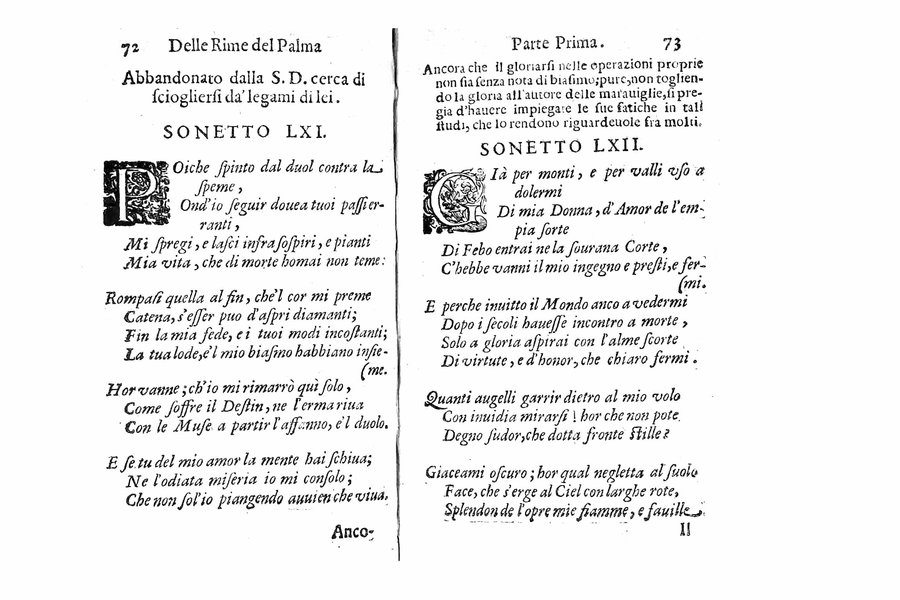 72 Delle Rime del Palma
Abbandonato dalla S. D. cerca di
ſcioglierſi da' legami di lei.
SONETTO LXI.
POiche ſpinto dal duol contra la
ſpeme,
Ond'io ſeguir douea tuoi paſſi er-
ranti,
Mi ſpregi, e laſci infra ſoſpiri, e pianti
Mia vita, che di morte homai non teme:
Rompaſi quella al fin, che'l cor mi preme
Catena, s'eſſer puo d'aſpri diamanti;
Fin la mia fede, e i tuoi modi incoſtanti;
La tua lode, e'l mio biaſmo habbiano inſie-
(me.
Hor vanne; ch'io mi rimarrò quì ſolo,
Come ſoffre il Deſtin, ne l'erma riua
Con le Muſe a partir l'affanno, e'l duolo.
E ſe tu del mio amor la mente hai ſchiua;
Ne l'odiata miſeria io mi conſolo;
Che non ſol'io piangendo auuien che viua.
Anco-
Parte Prima. 73
Ancora che il gloriarſi nelle operazioni proprie
non ſia ſenza nota di biaſimo; pure, non toglien-
do la gloria all'autore delle marauiglie, ſi pre-
gia d'hauere impiegate le ſue fatiche in tali
ſtudi, che lo rendono riguardeuole fra molti.
SONETTO LXII.
GIà per monti, e per valli vſo a
dolermi
Di mia Donna, d'Amor de l'em-
pia ſorte
Di Febo entrai ne la ſourana Corte,
C'hebbe vanni il mio ingegno e preſti, e fer-
(mi.
E perche inuitto il Mondo anco a vedermi
Dopo i ſecoli haueſſe incontro a morte,
Solo a gloria aſpirai con l'alme ſcorte
Di virtute, e d'honor, che chiaro fermi.
Quanti augelli garrir dietro al mio volo
Con inuidia mirarſi! hor che non pote
Degno ſudor, che dotta fronte ſtille?
Giaceami oſcuro; hor qual negletta al ſuolo
Face, che s'erge al Ciel con larghe rote,
Splendon de l'opre mie fiamme, e fauille.
Il